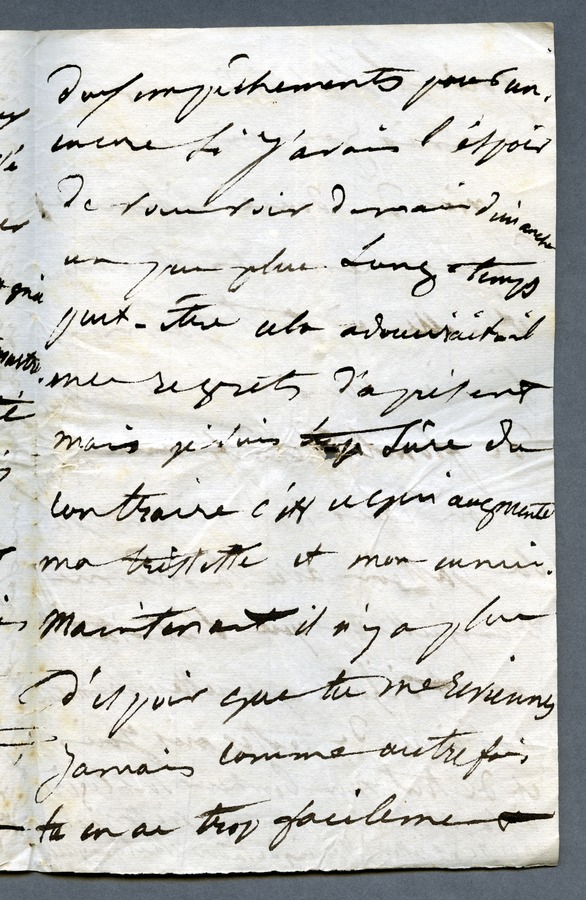 des empêchements pour un.
encore si j'avais l'éspoir
de revoir demain dimanche
un peu plus Longtemps
peut-être cela adouciraitil
mes regrets d'aprésent
mais je suis trop sûre du
contraire c'est ce qui augmente
ma tristesse et mon ennui.
Maintenant il n'y a plus
d'espoir que tu me reviennes
Jamais comme autrefois
tu en as trop facilement